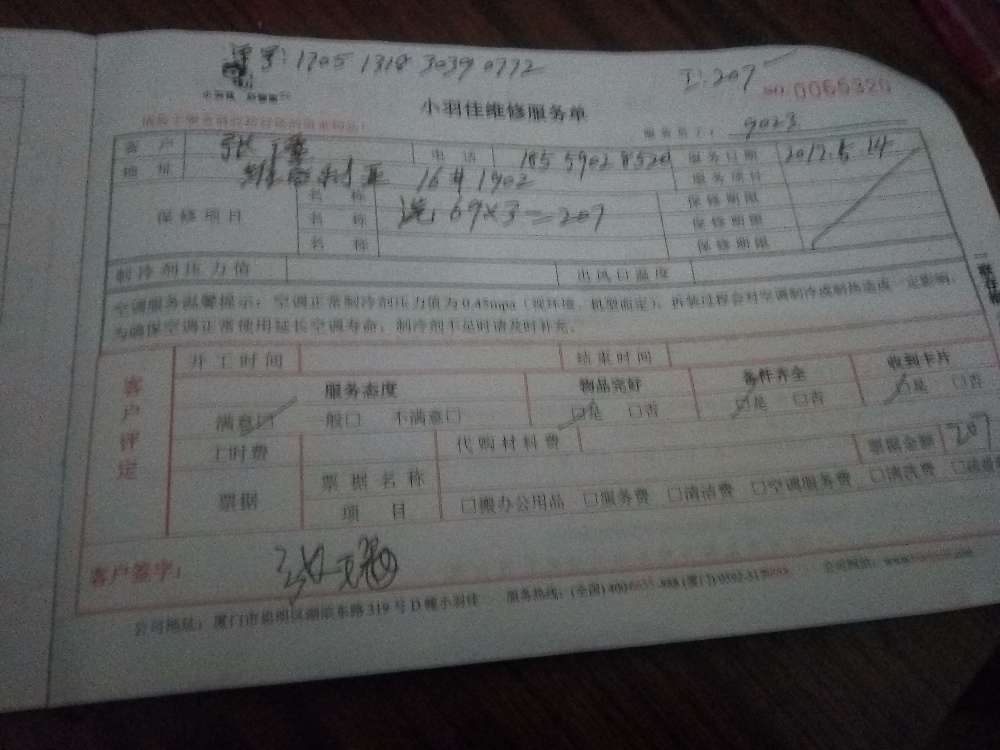 单号: 1705 1318 3039 0772
工: 207
NO. 0066320
小羽佳维修服务单
服务员工: 9023
客 户 张 电 话 185 5902 8520 服务日期 2017.5.14
地 址 维多利亚 16# 1902 服务项目
保修项目 名 称 洗, 69×3=207 保修期限
名 称 保修期限
名 称 保修期限
制冷剂压力值 出风口温度
空调服务温馨提示: 空调正常制冷剂压力值为0.45mpa (视环境、机型而定), 拆装过程会对空调制冷或制热造成一定影响,
为确保空调正常使用延长空调寿命, 制冷剂不足时请及时补充。
客户评定
开工时间 结束时间
服务态度 物品完好 备件齐全 收到卡片
满意□ 一般□ 不满意□ □是 □否 □是 □否 □是 □否
工时费 代购材料费 票据金额 207
票据 票据名称
项 目 □搬办公用品 □服务费 □清洁费 □空调服务费 □清洗费
客户签字:
公司地址: 厦门市思明区湖滨东路319号D幢小羽佳 服务热线: (全国) 400 (厦门) 0592 公司网站: www.